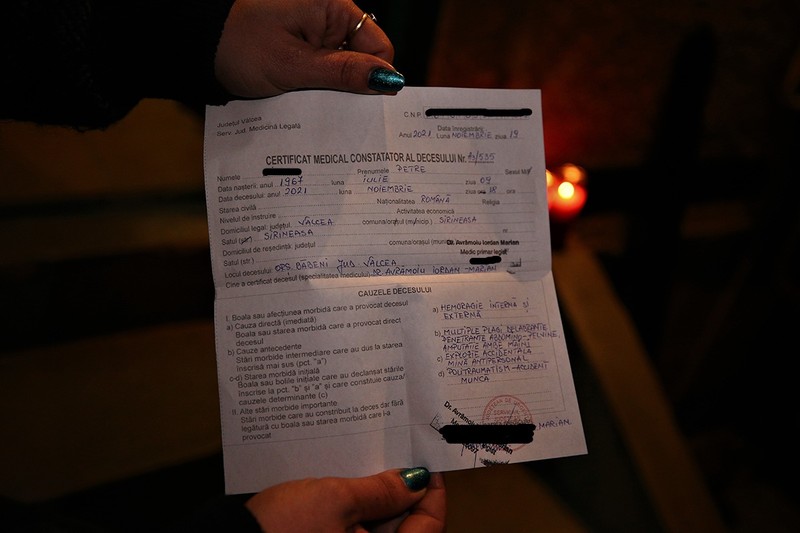 Județul Vâlcea
Serv. Jud. Medicină Legală
C.N.P.
Data înregistrării
Anul 2021 Luna NOIEMBRIE ziua 19
CERTIFICAT MEDICAL CONSTATATOR AL DECESULUI Nr.
Numele Prenumele PETRE Sexul M/
Data nașterii: anul 1967 luna IULIE ziua 09
Data decesului: anul 2021 luna NOIEMBRIE ziua 18 ora
Starea civilă Naționalitatea ROMÂNĂ Religia
Nivelul de instruire Activitatea economică
Domiciliul legal: județul VALCEA comuna/orașul (municip.) SIRINEASA
Satul (str) SIRINEASA
Domiciliul de reședință: județul comuna/orașul
Satul (str)
Dr. Avrămoiu Iordan Marian
Medic primar legist
Locul decesului ORȘ. BĂBENI JUD. VALCEA
Cine a certificat decesul (specialitatea medicului) DR AVRĂMOIU IORDAN-MARIAN
CAUZELE DECESULUI
I. Boala sau afecțiunea morbidă care a provocat decesul
a) Cauza directă (imediată)
Boala sau starea morbidă care a provocat direct
decesul
b) Cauze antecedente
Stări morbide intermediare care au dus la starea
înscrisă mai sus (pct. "a")
c-d) Starea morbidă inițială
Boala sau bolile inițiale care au declanșat stările
înscrise la pct. "b" și "a" și care constituie cauza/
cauzele determinante (c)
II. Alte stări morbide importante
Stări morbide care au contribuit la deces dar fără
legătură cu boala sau starea morbidă care l-a
provocat
a) HEMORAGIE INTERNĂ ȘI
EXTERNĂ
b) MULTIPLE PLĂGI DELABRANTE
PENETRANTE ABDOMINO-PELVINE,
AMPUTAȚIE AMBE MÂINI
c) EXPLOZIE ACCIDENTALĂ
MINĂ ANTIPERSONAL
d) POLITRAUMATISM-ACCIDENT
MUNCA
Dr. Avrămoiu
MARIAN.